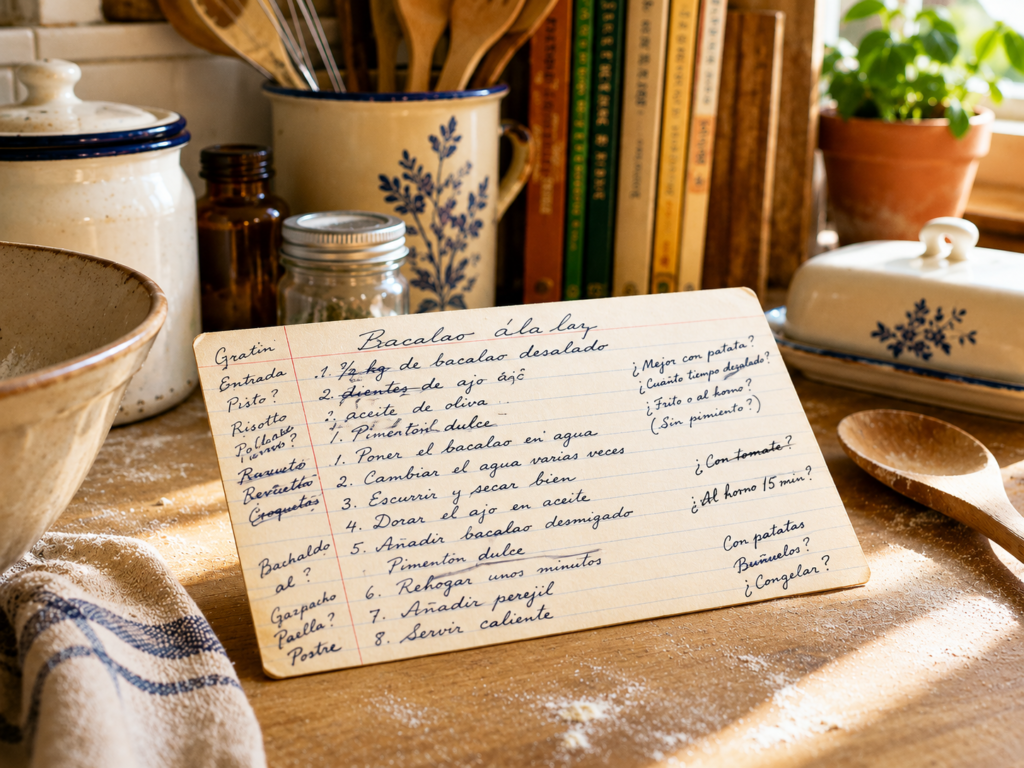 Bacalao á la laz
Gratin
Entrada
Pisto?
Risotto
Revuelto
Croquetas
Bachaldo
al?
Gazpacho
Paella?
Postre
.1. ½ kg de bacalao desalado
2. dientes de ajo
? aceite de oliva
1. Pimentón dulce
.1. Poner el bacalao en agua
2. Cambiar el agua varias veces
3. Escurrir y secar bien
4. Dorar el ajo en aceite
5. Añadir bacalao desmigado
Pimentón dulce
6. Rehogar unos minutos
7. Añadir perejil
8. Servir caliente
¿Mejor con patata?
¿Cuánto tiempo dezalado?
¿Frito o al homo?
(Sin pimiento?)
¿Con tomate?
¿Al homo 15 min?
Con patatas
Buñuelos?
¿Congelar?